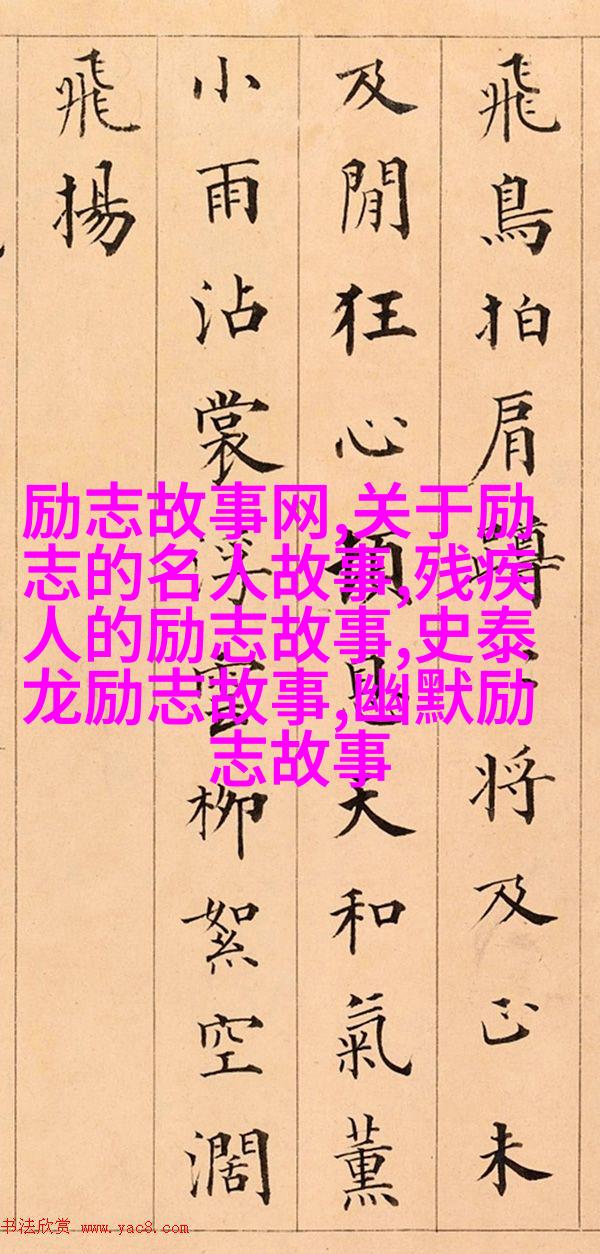 飛鳥拍肩將及正未
及閒狂心頓息天和氣薰
小雨沾裳浮雲柳絮空濶
飛揚
励志故事网,关于励
志的名人故事,残疾
人的励志故事,史泰
龙励志故事,幽默励
志故事
书法欣赏 www.yac8.com